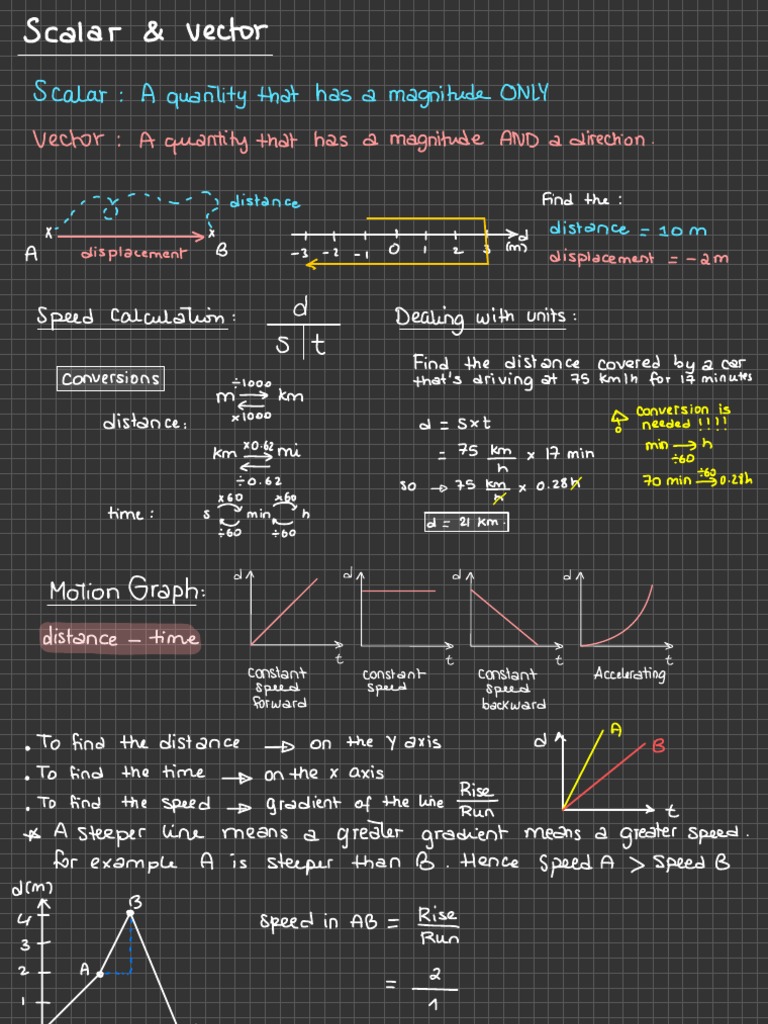 Scalar & vector
Scalar : A quantity that has a magnitude ONLY
Vector : A quantity that has a magnitude AND a direction.
distance
A x
x B
displacement
-3 -2 -1 0 1 2 3
d
(m)
Find the :
distance = 10 m
displacement = -2m
Speed Calculation :
d
s | t
Conversions
distance:
÷1000
m km
x1000
x0.62
km mi
÷0.62
time :
x60 x60
s min h
÷60 ÷60
Dealing with units :
Find the distance covered by a car
that's driving at 75 km/h for 17 minutes
d = s×t
= 75 km/h × 17 min
so → 75 km/h × 0.28h
d = 21 km.
conversion is
needed !!!!
min → h
÷60
÷60
70 min → 0.28h
Motion Graph:
distance – time
d t
constant
speed
forward
d t
constant
speed
d t
constant
speed
backward
d t
Accelerating
• To find the distance → on the Y axis
• To find the time → on the x axis
• To find the speed → gradient of the line Rise/Run
d A B t
* A steeper line means a greater gradient means a greater speed.
for example A is steeper than B. Hence Speed A > Speed B
d(m)
4
3
2
1
A
B
speed in AB = Rise/Run
= 2/1